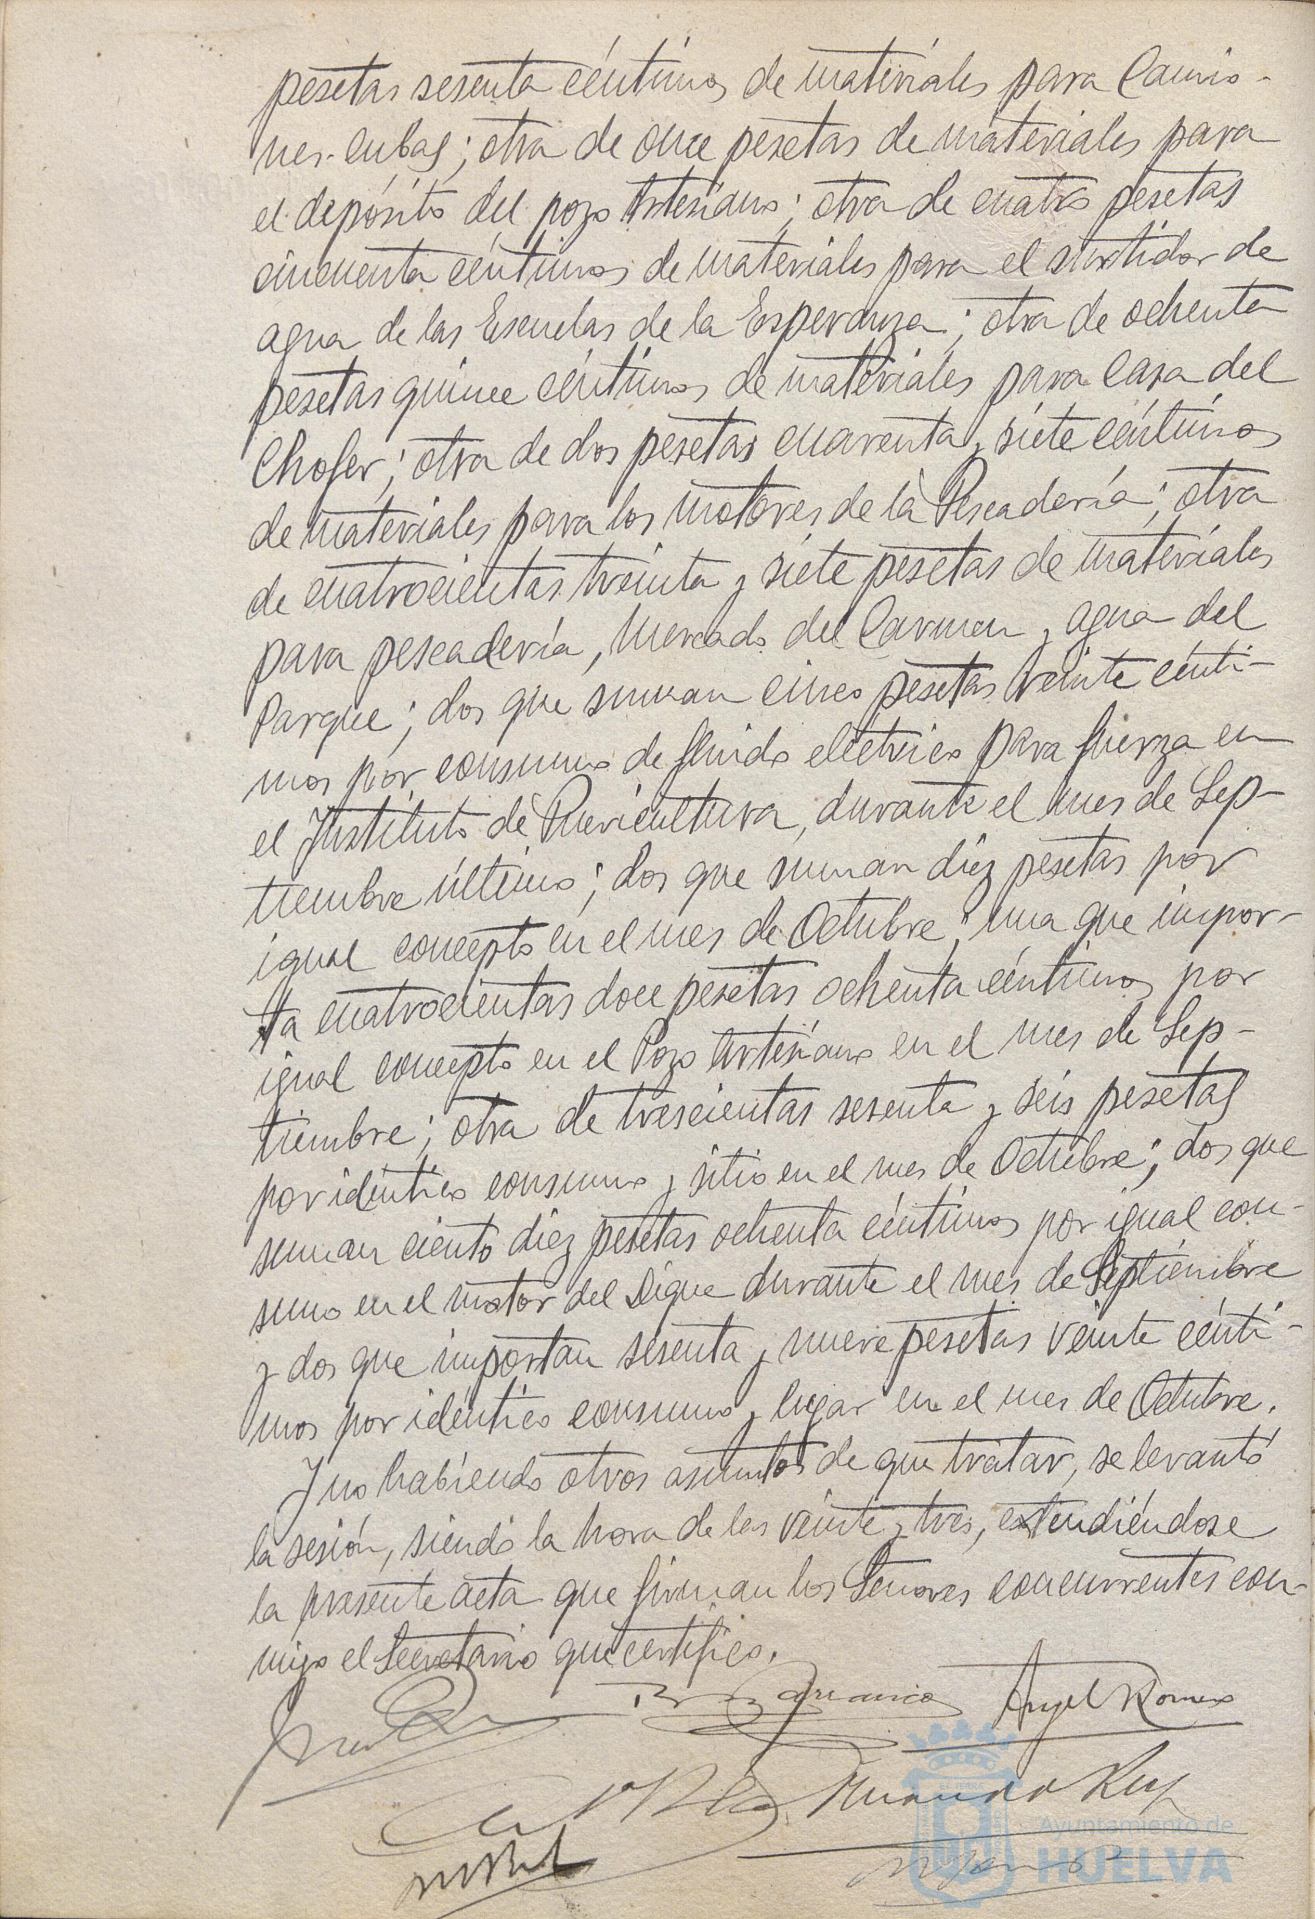 pesetas sesenta céntimos de materiales para Camio-
nes-cubas; otra de once pesetas de materiales para
el depósito del pozo Artesiano; otra de cuatro pesetas
cincuenta céntimos de materiales para el surtidor de
agua de las Escuelas de la Esperanza; otra de ochenta
pesetas quince céntimos de materiales para casa del
Chofer; otra de dos pesetas cuarenta y siete céntimos
de materiales para los motores de la Pescadería; otra
de cuatrocientas treinta y siete pesetas de materiales
para pescadería, Mercado del Carmen y agua del
Parque; dos que suman cinco pesetas veinte cénti-
mos por consumo de fluido eléctrico para fuerza en
el Instituto de Puericultura, durante el mes de Sep-
tiembre último; dos que suman diez pesetas por
igual concepto en el mes de Octubre; una que impor-
ta cuatrocientas doce pesetas ochenta céntimos por
igual concepto en el Pozo Artesiano en el mes de Sep-
tiembre; otra de trescientas sesenta y seis pesetas
por idéntico consumo y sitio en el mes de Octubre; dos que
suman ciento diez pesetas ochenta céntimos por igual con-
sumo en el motor del Dique durante el mes de Septiembre
y dos que importan sesenta y nueve pesetas veinte cénti-
mos por idéntico consumo y lugar en el mes de Octubre.
Y no habiendo otros asuntos de que tratar, se levantó
la sesión, siendo la hora de las veinte y tres, extendiéndose
la presente acta que firman los Señores concurrentes con-
migo el Secretario que certifico.
Angel Romero
Ayuntamiento de
HUELVA